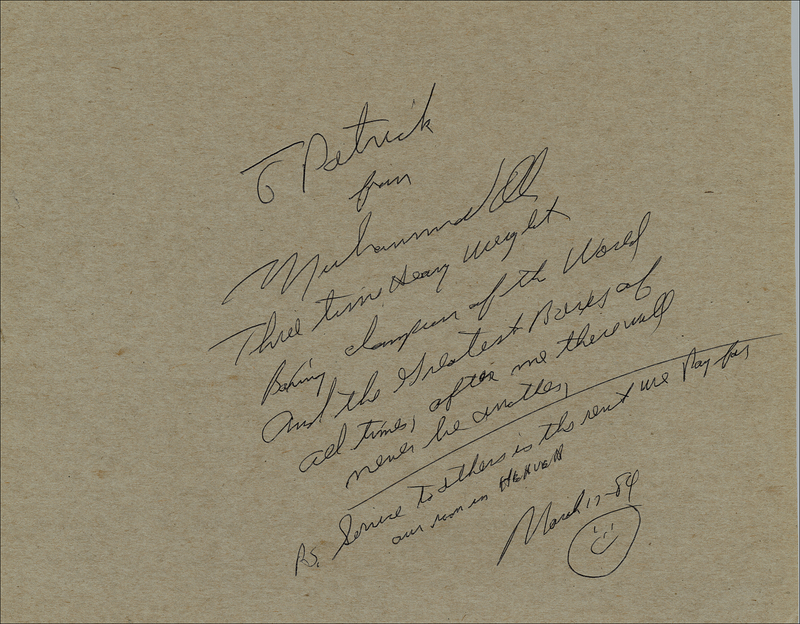 To Patrick
from
Muhammad Ali
Three time Heavy Weight
Boxing champion of the World
and the Greatest Boxes of
all times, after me there will
never be another,
P.S. Service to others is the rent we Pay for
our room in HEAVEN
March 17-84